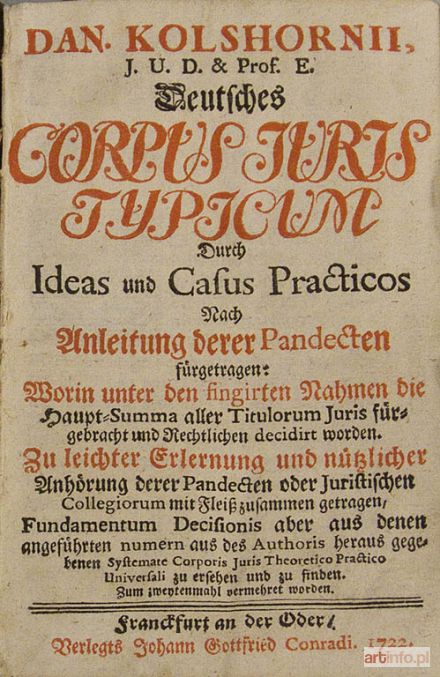 DAN. KOLSHORNII,
J. U. D. & Prof. E.
Deutsches
CORPUS JURIS
TYPICUM
Durch
Ideas und Casus Practicos
Nach
Anleitung derer Pandecten
fürgetragen:
Worin unter den fingirten Nahmen die
Haupt-Summa aller Titulorum Juris für-
gebracht und Rechtlichen decidirt worden.
Zu leichter Erlernung und nützlicher
Anhörung derer Pandecten oder Juristischen
Collegiorum mit Fleiß zusammen getragen,
Fundamentum Decisionis aber aus denen
angeführten numern aus des Authoris heraus gege-
benen Systemate Corporis Juris Theoretico Practico
Universali zu ersehen und zu finden.
Zum zweytenmahl vermehret worden.
Franckfurt an der Oder,
Verlegts Johann Gottfried Conradi. 1722.
artinfo.pl